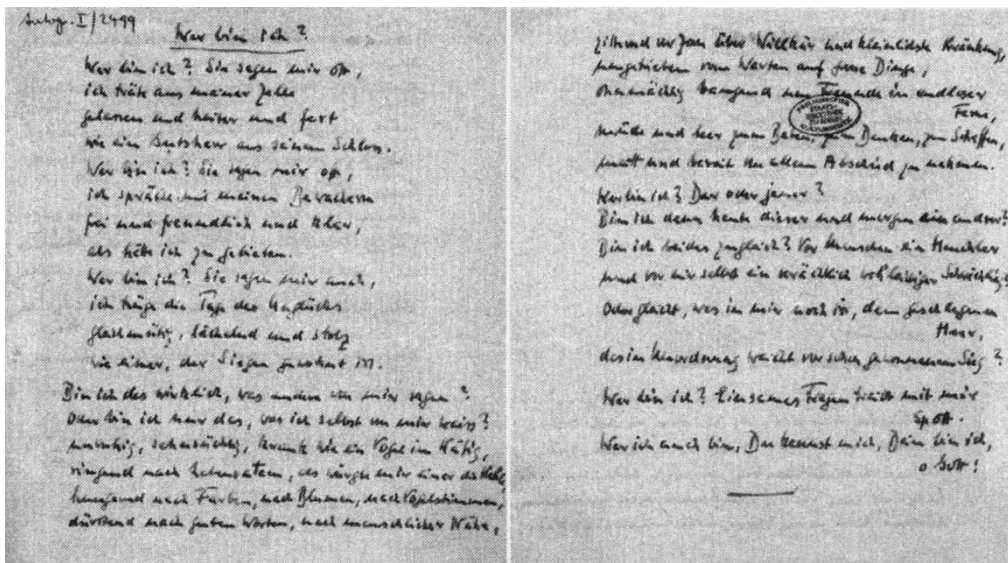 Autogr. I/2499
Wer bin ich?
Wer bin ich? Sie sagen mir oft,
ich träte aus meiner Zelle
gelassen und heiter und fest
wie ein Gutsherr aus seinem Schloss.
Wer bin ich? Sie sagen mir oft,
ich spräche mit meinen Bewachern
frei und freundlich und klar,
als hätte ich zu gebieten.
Wer bin ich? Sie sagen mir auch,
ich trüge die Tage des Unglücks
gleichmütig, lächelnd und stolz
wie einer, der Siegen gewohnt ist.
Bin ich das wirklich, was andere von mir sagen?
Oder bin ich nur das, was ich selbst von mir weiss?
unruhig, sehnsüchtig, krank wie ein Vogel im Käfig,
ringend nach Lebensatem, als würgte mir einer die Kehle,
hungernd nach Farben, nach Blumen, nach Vogelstimmen,
dürstend nach guten Worten, nach menschlicher Nähe,
zitternd vor Zorn über Willkür und kleinlichste Kränkung,
umgetrieben vom Warten auf grosse Dinge,
ohnmächtig bangend um Freunde in endloser
Ferne,
müde und leer zum Beten, zum Denken, zum Schaffen,
matt und bereit von allem Abschied zu nehmen.
Wer bin ich? Der oder jener?
Bin ich denn heute dieser und morgen ein andrer?
Bin ich beides zugleich? Vor Menschen ein Heuchler
und vor mir selbst ein verächtlich wehleidiger Schwächling?
Oder gleicht, was in mir noch ist, dem geschlagenen
Heer,
das in Unordnung weicht vor schon gewonnenem Sieg?
Wer bin ich? Einsames Fragen treibt mit mir
Spott.
Wer ich auch bin, Du kennst mich, Dein bin ich,
o Gott!